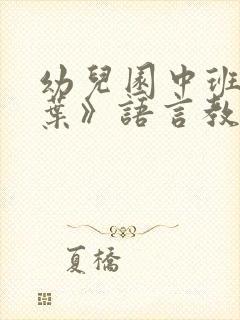 幼兒園中班
葉》語言教
夏橋